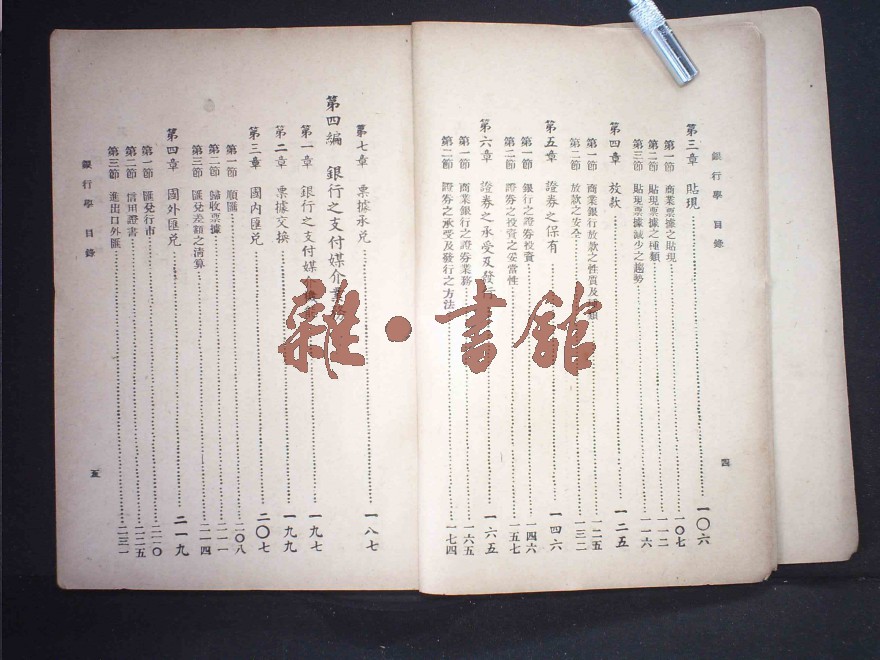 銀行學 目錄
第三章 貼現 一〇六
第一節 商業票據之貼現 一〇七
第二節 貼現票據之種類 一一二
第三節 貼現票據減少之趨勢 一一六
第四章 放款 一二五
第一節 商業銀行放款之性質及種類 一二五
第二節 放款之安全 一三二
第五章 證券之保有 一四六
第一節 銀行之證券投資 一四六
第二節 證券之投資之妥當性 一五七
第六章 證券之承受及發行 一六五
第一節 商業銀行之證券業務 一六五
第二節 證券之承受及發行之方法 一七四
四
第七章 票據承兌 一八七
第四編 銀行之支付媒介業務
第一章 銀行之支付媒介 一九七
第二章 票據交換 一九九
第三章 國內匯兌 二〇七
第一節 順匯 二〇八
第二節 歸收票據 二一一
第三節 匯兌差額之清算 二一四
第四章 國外匯兌 二一九
第一節 匯兌行市 二二〇
第二節 信用證書 二二五
第三節 進出口外匯 二三一
銀行學 目錄
五
雜·書館